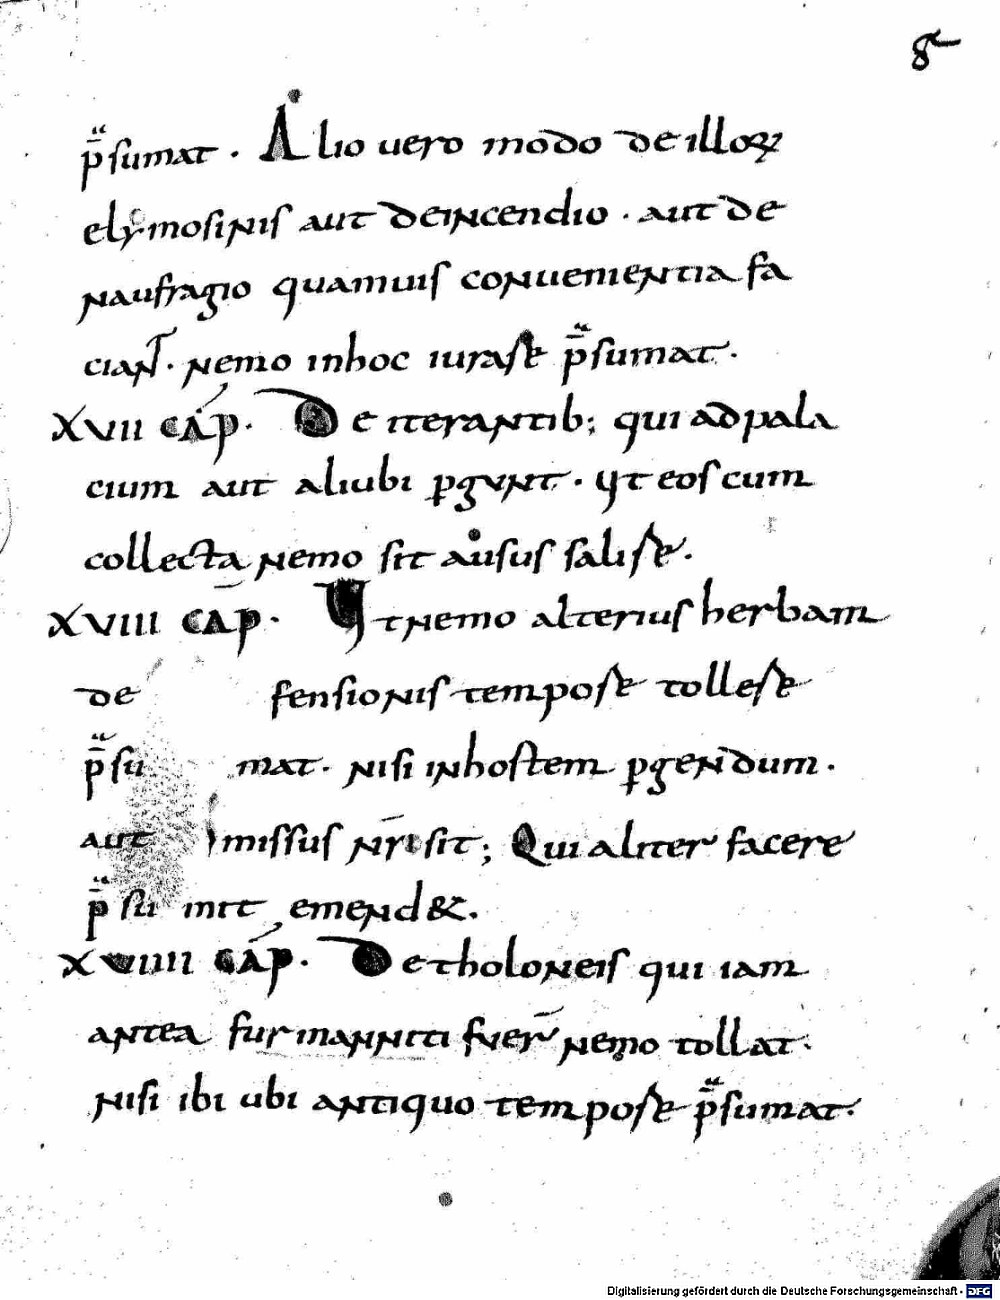 8
p̄sumat . Alio vero modo de illoꝝ
elymosinis aut deincendio . aut de
naufragio quamuis conuenientia fa
ciant . nemo inhoc iurare p̄sumat .
XVII CAP̄ . De iterantib; qui adpala
cium aut aliubi ꝑgunt . ut eos cum
collecta nemo sit ausus salire .
XVIII CAP̄ . Ut nemo alterius herbam
de fensionis tempore tollere
p̄su mat . nisi inhostem ꝑgendum .
aut missus nr̄i sit ; Qui aliter facere
p̄su mit emend& .
XVIIII CAP̄ . De tholoneis qui iam
antea furmanniti fuer̄ nemo tollat .
nisi ibi ubi antiquo tempore p̄sumat .
Digitalisierung gefördert durch die Deutsche Forschungsgemeinschaft - DFG